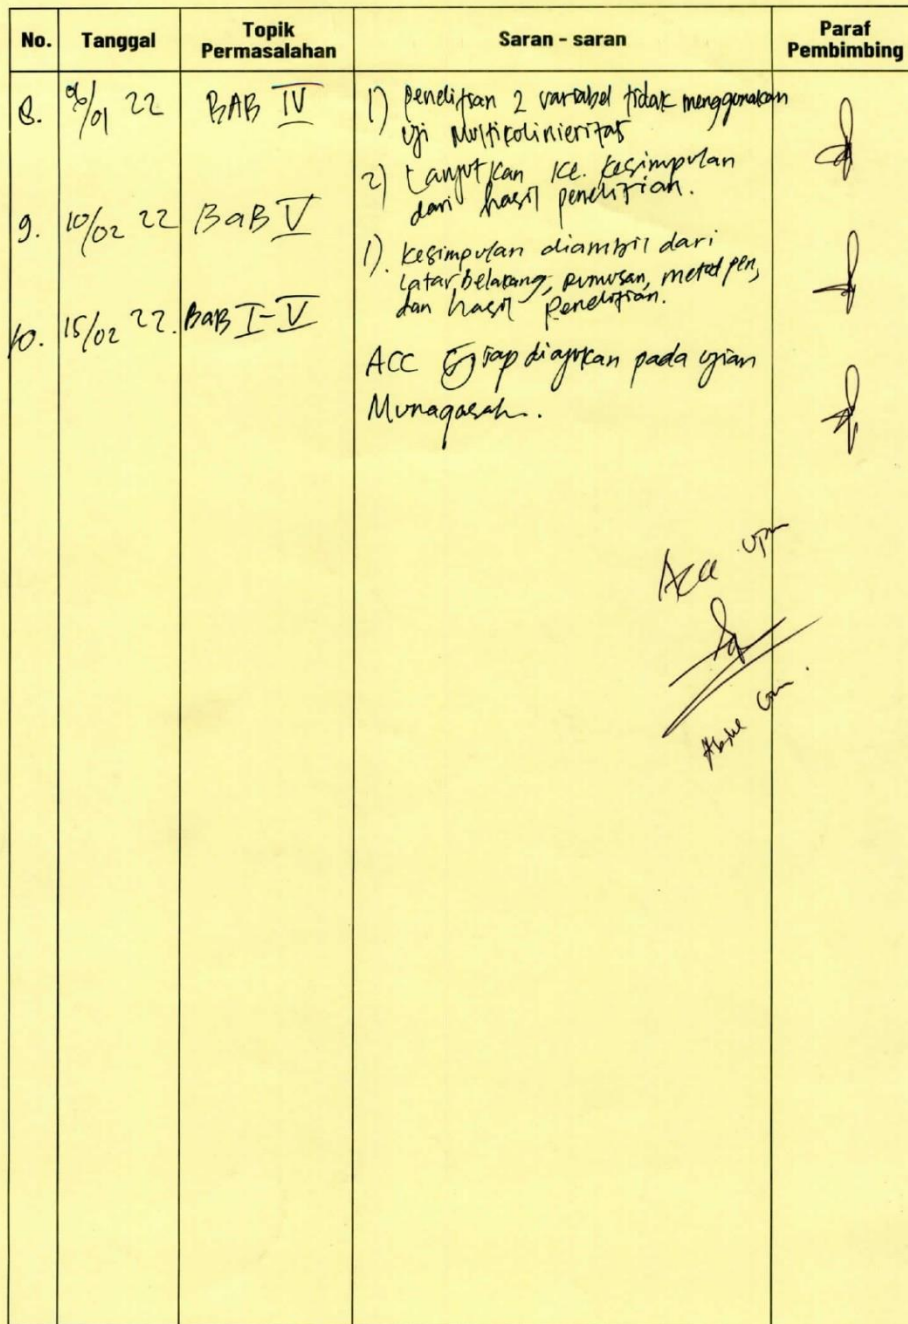 No. Tanggal Topik Permasalahan Saran - saran Paraf Pembimbing
8. /01 22 BAB IV 1) Penelitian 2 variabel tidak menggunakan
uji Multikolinieritas
2) Lanjutkan ke. kesimpulan
dari hasil penelitian.
9. 10/02 22 BaB V
1). Kesimpulan diambil dari
latar belakang, rumusan, metod pen,
dan hasil penelitian.
10. 15/02 22. BaB I-V
ACC siap diajukan pada ujian
Munaqasah.
Acc